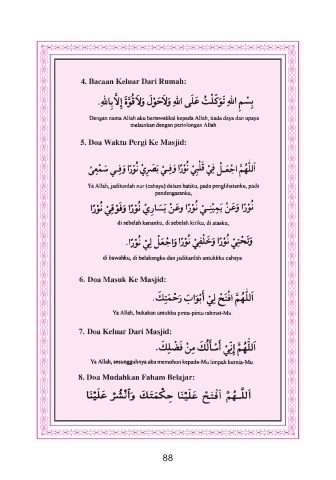 4. Bacaan Keluar Dari Rumah:
بِسْمِ اللهِ تَوَكَّلْتُ عَلَى اللهِ وَلاَحَوْلَ وَلاَقُوَّةَ إِلاَّبِاللهِ.
Dengan nama Allah aku bertawakkal kepada Allah, tiada daya dan upaya
melainkan dengan pertolongan Allah
5. Doa Waktu Pergi Ke Masjid:
اَللّٰهُمَّ اجْعَلْ فِيْ قَلْبِيْ نُوْرًا وَفِيْ بَصَرِيْ نُوْرًا وَفِيْ سَمْعِيْ
Ya Allah, jadikanlah nur (cahaya) dalam hatiku, pada penglihatanku, pada
pendengaranku,
نُوْرًا وَعَنْ يَمِيْنِيْ نُوْرًا وَعَنْ يَسَارِيْ نُوْرًا وَفَوْقِيْ نُوْرًا
di sebelah kananku, di sebelah kiriku, di atasku,
وَتَحْتِيْ نُوْرًا وَخَلْفِيْ نُوْرًا وَاجْعَلْ لِيْ نُوْرًا.
di bawahku, di belakangku dan jadikanlah untukkku cahaya
6. Doa Masuk Ke Masjid:
اَللّٰهُمَّ افْتَحْ لِيْ أَبْوَابَ رَحْمَتِكَ.
Ya Allah, bukakan untukku pintu-pintu rahmat-Mu
7. Doa Keluar Dari Masjid:
اَللّٰهُمَّ إِنِّيْ أَسْأَلُكَ مِنْ فَضْلِكَ.
Ya Allah, sesungguhnya aku memohon kepada-Mu limpah kurnia-Mu
8. Doa Mudahkan Faham Belajar:
اَللّٰهُمَّ افْتَحْ عَلَيْنَا حِكْمَتَكَ وَانْشُرْ عَلَيْنَا
88